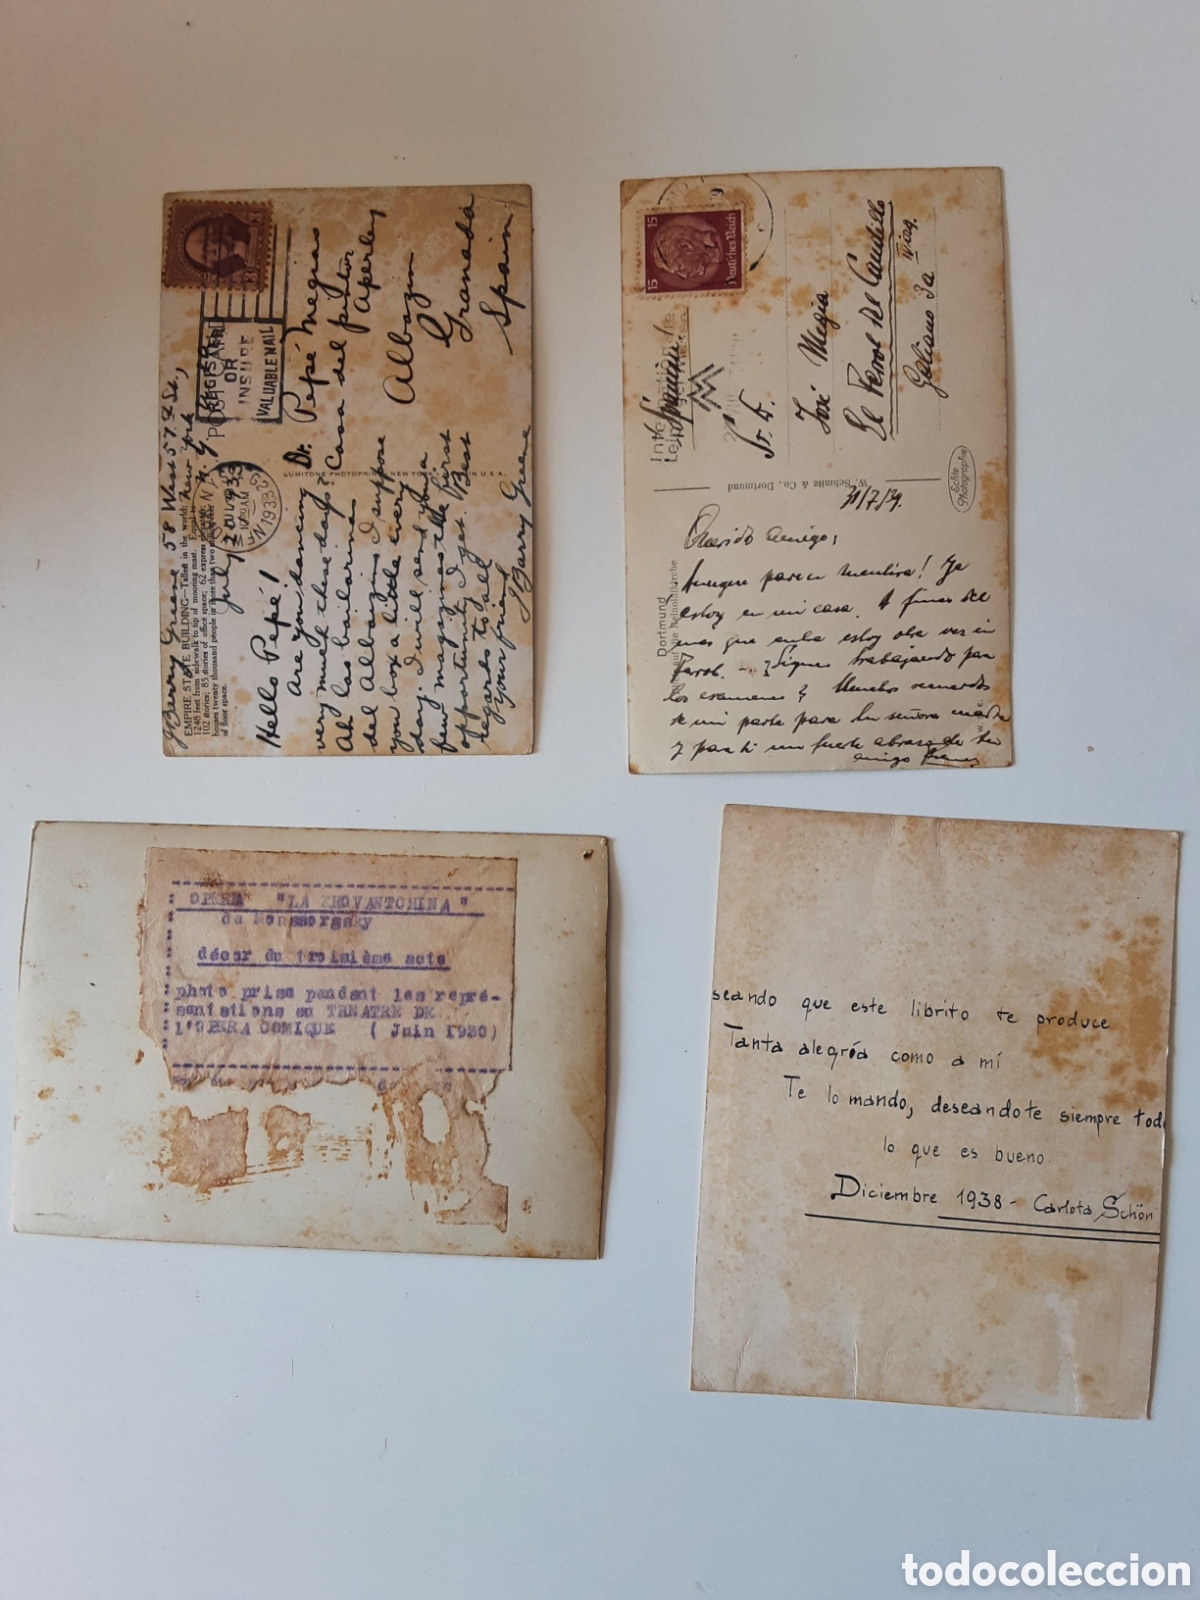 J Barry Greene 58 West 57th St.,
New York
N. Y.
July
EMPIRE STATE BUILDING—Tallest in the world;
1248 feet from sidewalk to tip of mooring mast. Equal to
102 stories; 85 stories of office space; 62 express
houses twenty thousand people or more than two
of floor space.
POST CARD
REGISTER
OR
INSURE
VALUABLE MAIL
1933
LUMITONE PHOTOPRINT, NEW YORK. MADE IN U.S.A.
Hello Pepé!
Are you dancing
very much these days?
Ah las bailarinas
del Albaizin. I suppose
you box a little every
day. I will send you a
few magazines the first
opportunity I get. Best
regards to all
Your friend
J Barry Greene
Dr. Pepé Megias
Casa del pintor
Aperley
Albazin
Granada
Spain
15 15
Deutsches Reich
Spanien!
Sr. D.
José Megia
El Ferrol del Caudillo
Galiano 3a
Echte Photographie
W. Schmitz & Co., Dortmund
Dortmund
31/7/39.
Querido amigo:
Aunque parece mentira! Ya
estoy en mi casa. A fines del
mes que entra estoy otra vez en
Ferrol. — ¿Sigues trabajando para
los examenes? Muchos recuerdos
de mi parte para tu señora madre
y para ti un fuerte abrazo de tu
amigo
OPERA "LA KHOVANTCHINA"
de Moussorgsky
décor du troisième acte
photo prise pendant les repré-
sentations au THEATRE DE
l'OPERA COMIQUE ( Juin 1930)
seando que este librito te produce
Tanta alegría como a mí
Te lo mando, deseandote siempre tod
lo que es bueno.
Diciembre 1938 - Carlota Schön
todocoleccion